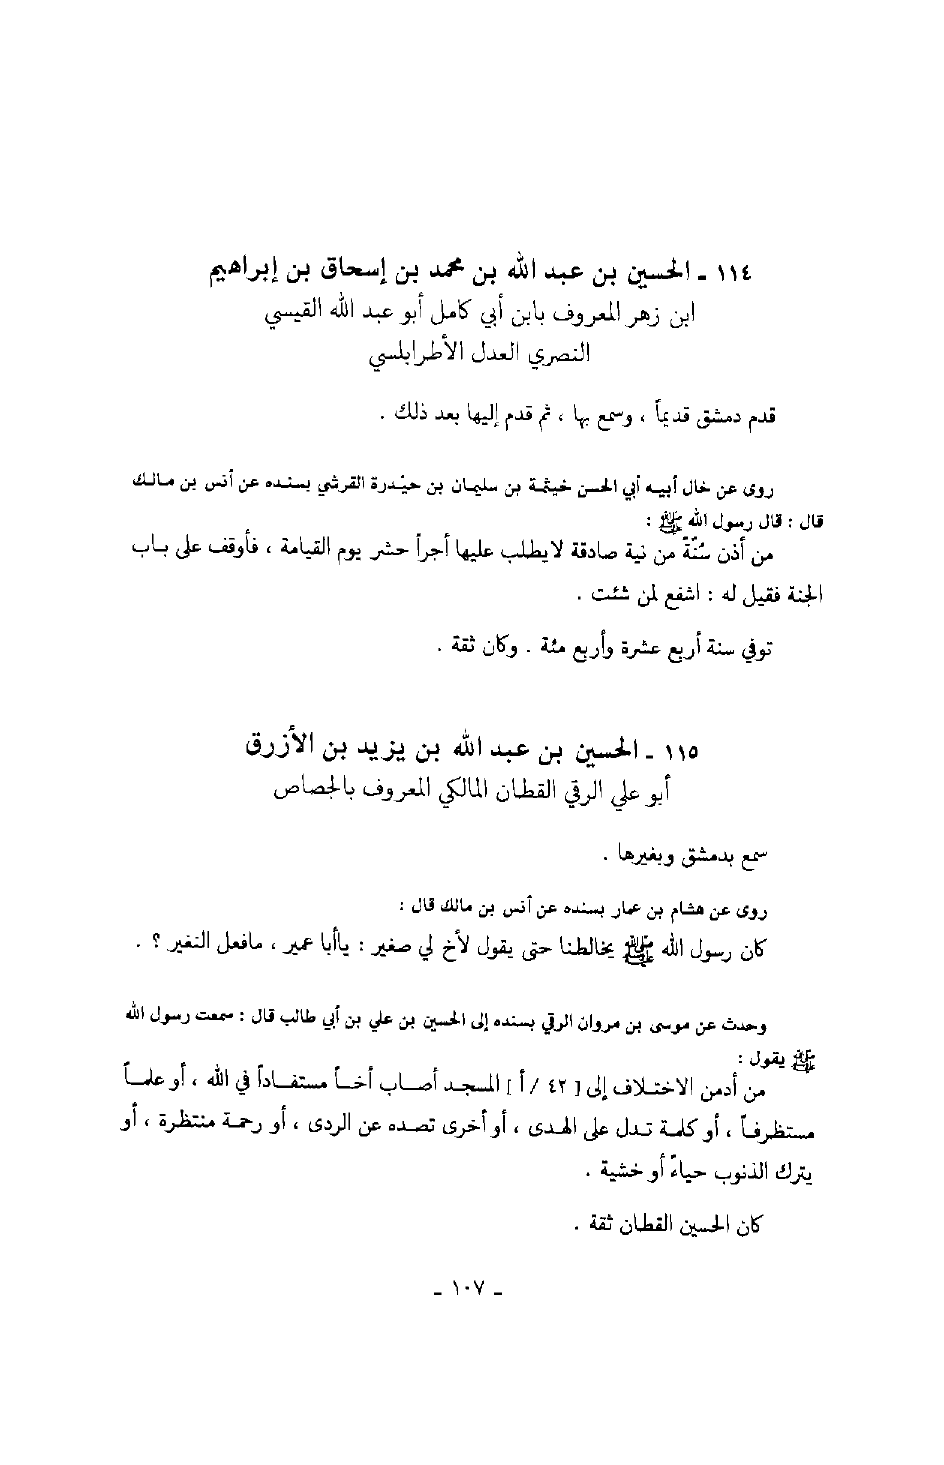 ١١٤ ـ الحسين بن عبد الله بن محمد بن إسحاق بن إبراهيم
ابن زهر المعروف بابن أبي كامل أبو عبد الله القيسي
النصري العدل الأطرابلسي
قدم دمشق قديماً ، وسمع بها ، ثم قدم إليها بعد ذلك .
روى عن خال أبيه أبي الحسن خيثمة بن سليمان بن حيْدرة القرشي بسنده عن أنس بن مالك
قال : قال رسول الله ﷺ :
من أذن سُنّةً من نية صادقة لايطلب عليها أجراً حشر يوم القيامة ، فأوقف على باب
الجنة فقيل له : اشفع لمن شئت .
توفي سنة أربع عشرة وأربع مئة . وكان ثقة .
١١٥ ـ الحسين بن عبد الله بن يزيد بن الأزرق
أبو علي الرقي القطان المالكي المعروف بالجصاص
سمع بدمشق وبغيرها .
روى عن هشام بن عمار بسنده عن أنس بن مالك قال :
كان رسول الله ﷺ يخالطنا حتى يقول لأخ لي صغير : ياأبا عمير ، مافعل النغير ؟ .
وحدث عن موسى بن مروان الرقي بسنده إلى الحسين بن علي بن أبي طالب قال : سمعت رسول الله
ﷺ يقول :
من أدمن الاختلاف إلى [ ٤٢ /أ ] المسجد أصاب أخاً مستفاداً في الله ، أو علماً
مستظرفاً ، أو كلمة تدل على الهدى ، أو أخرى تصده عن الردى ، أو رحمة منتظرة ، أو
يترك الذنوب حياءً أو خشية .
كان الحسين القطان ثقة .
ـ ١٠٧ ـ